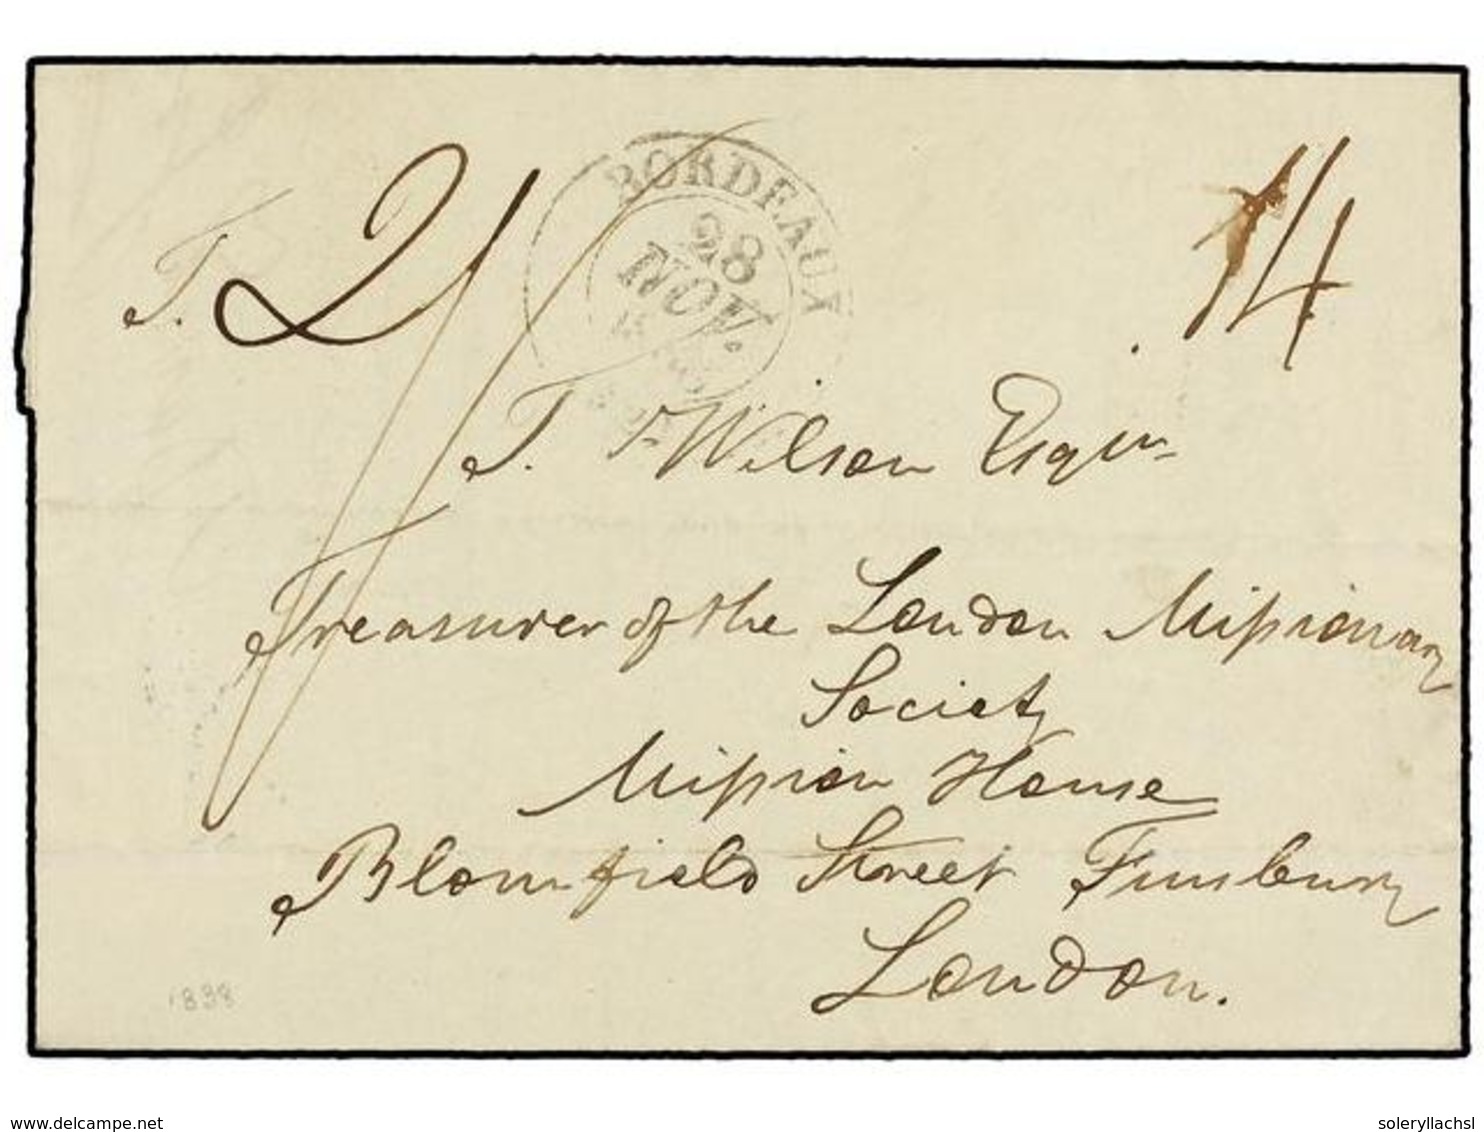 T. 2/
BORDEAUX
28
NOV.
14
T. Wilson Esquire
Treasurer of the London Missionary
Society
Mission House
Blomfield Street Finsbury
London.
1838
delcampe.net
soleryllachsl